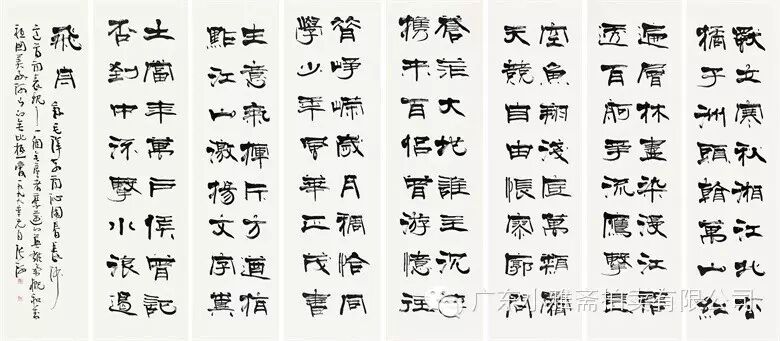 獨立寒秋湘江北去
橘子洲頭看萬山紅
遍層林盡染漫江碧
透百舸爭流鷹擊長
空魚翔淺底萬類霜
天競自由悵寥廓問
蒼茫大地誰主沉浮
攜來百侶曾游憶往
昔崢嶸歲月稠恰同
學少年風華正茂書
生意氣揮斥方遒指
點江山激揚文字糞
土當年萬戶侯曾記
否到中流擊水浪遏
飛舟 毛澤東詞沁園春長沙
广东小雅斋拍卖有限公司